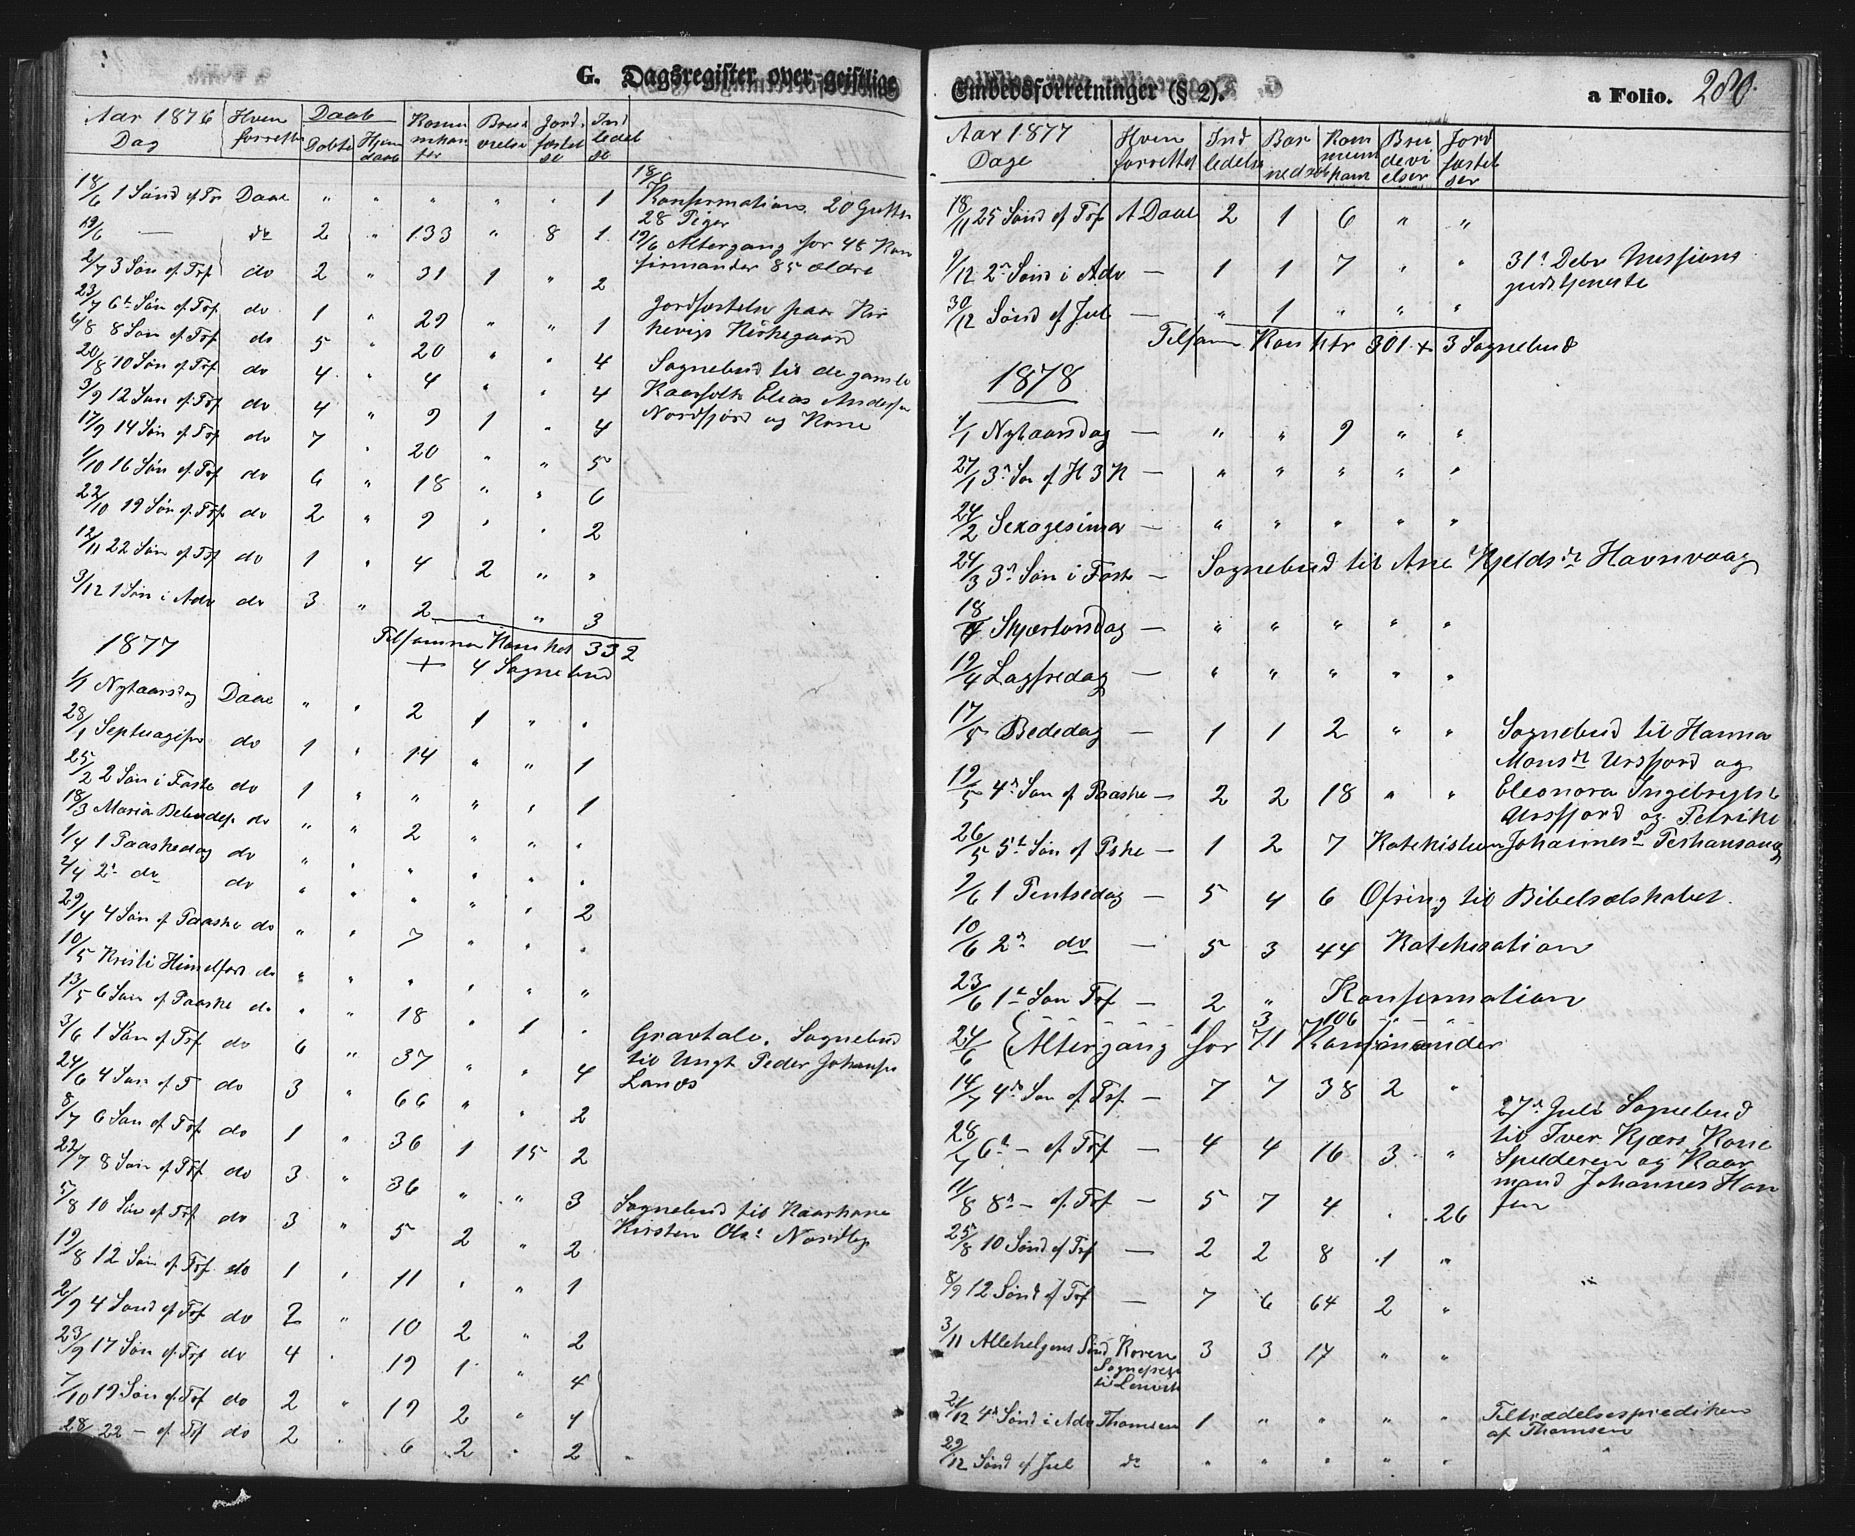 G. Dagsregister over geistlige
Aar 1876 Hvem Daab Kommunikanter Brudevielse Jordfæstelse Indledelse
Dag forrettet Døbte Hjemdaab
18/6 1 Sønd ef Tr Daae " " " " " 1
18/6
Konfirmation. 20 Gutter
28 Piger
19/6 — do 2 " 133 " 8 1
19/6 Altergang for 48 Kon
firmander 85 ældre
2/7 3 Søn ef Trf do 2 " 31 1 " 2
23/7 6te Søn ef Trf do 1 " 29 " " 1
Jordfæstelse paa
Kirkegaard
6/8 8 Søn ef Trf do 5 " 20 " " 4
20/8 10 Søn ef Trf do 4 " 4 " " 4
Sognebud til de gamle
Kaarfolk Elias Anders
Nordfjord og Kone
3/9 12 Søn ef Trf do 4 " 9 1 " 4
17/9 14 Søn ef Trf do 7 " 20 " " 5
1/10 16 Søn ef Trf do 6 " 18 " " 6
22/10 19 Søn ef Trf do 2 " 9 " " 2
12/11 22 Søn ef Trf do 1 " 4 2 " "
3/12 1 Søn i Adv do 3 " 2 " " 3
Tilsammen Kom 332
+ 4 Sognebud
1877
1/1 Nytaarsdag Daae " " 2 1 " "
28/1 Septuages do 1 " 14 " " 1
25/2 2 Søn i Faste do 1 " " " " 1
18/3 Mariæ Bebudels do " " 2 " " "
1/4 1 Paaskedag do " " " " " "
2/4 2n do do " " " " " 2
29/4 4 Søn ef Paaske do " " 7 " " "
10/5 Kristi Himmelfart do " " " " " "
13/5 6 Søn ef Paaske do " " 18 1 "
3/6 1 Søn ef Trf do 6 " 37 " " 4
Gravtale. Sognebud
til Ungk Peder Johans
24/6 4 Søn ef T do 3 " 66 " " 2
8/7 6 Søn ef Trf do 1 " 36 1 15 2
22/7 8 Søn ef Trf do 3 " 36 " " 3
5/8 10 Søn ef Trf do 3 " 5 2 " 2
Sognebud til Kaarkone
Kirsten Ols
19/8 12 Søn ef Trf do 1 " 11 " " 1
2/9 4 Sønd ef Trf do 2 " 10 2 " 2
23/9 17 Søn ef Trf do 4 " 19 1 " 4
7/10 19 Søn ef Trf do 2 " 19 2 " 4
28/ 22 — ef Trf do 2 " 6 2 " 2
Embedsforretninger (§ 2). a Folio. 280.
Aar 1877 Hvem Ind Bar Kom Bru Jord
Dage forrettet ledelse nedaab mun devi fæstel
kam elser ser
18/11 25 Sønd ef Trf A Daae 2 1 6 " "
9/12 2n Sønd i Adv — 1 1 7 " "
31te Debr Missions
gudstjeneste
30/12 Sønd ef Jul — " 1 " " "
Tilsam Kom 301 + 3 Sognebud
1878
1/1 Nytaarsdag — " " 9 " "
27/1 3n Søn ef H 3 K — " " " " "
24/2 Sexagesima — " " " " "
24/3 3n Søn i Faste — Sognebud til Ane Kjeldsdr Havnvaag
18/4 Skjærtorsdag — " " " " "
19/4 Langfredag — " " " " "
17/5 Bededag — 1 1 2 " "
Sognebud til Hanna
Monsdr Ursfjord og
19/5 4n Søn ef Paaske — 2 2 18 " "
Eleonora Ingebrigts
Ursfjord og Petrike
26/5 5te Søn ef Pske — 1 2 7 Katekisten Johannes
9/6 1 Pentsedag — 5 4 6 Ofring til Bibelselskabet.
10/6 2n do — 5 3 44 Katekisation
23/6 1te Søn Trf — 2 " Konfirmation
3 106
24/6 (Altergang for 71 Konfirmander
14/7 4n Søn ef Trf. — 7 7 38 2 "
27n Juli Sognebud
28/7 6te — ef Trf — 4 4 16 3 "
til Iver Kjærs Kone
Spilderen og Kaar
11/8 8n — ef Trf — 5 7 4 . 26
mand Johannes Han
sen
25/8 10 Sønd ef Trf — 2 2 8 1 "
8/9 12 Sønd ef Trf — 7 6 64 2 "
3/11 Allehelgens Sønd Koren 3 3 17 " "
Sognepræst
til Lenvik
21/12 4n Sønd i Adv Thomsen 1 " " " "
Tiltrædelsesprædiken
af Thomsen
29/12 Sønd ef Jul do " " " " "